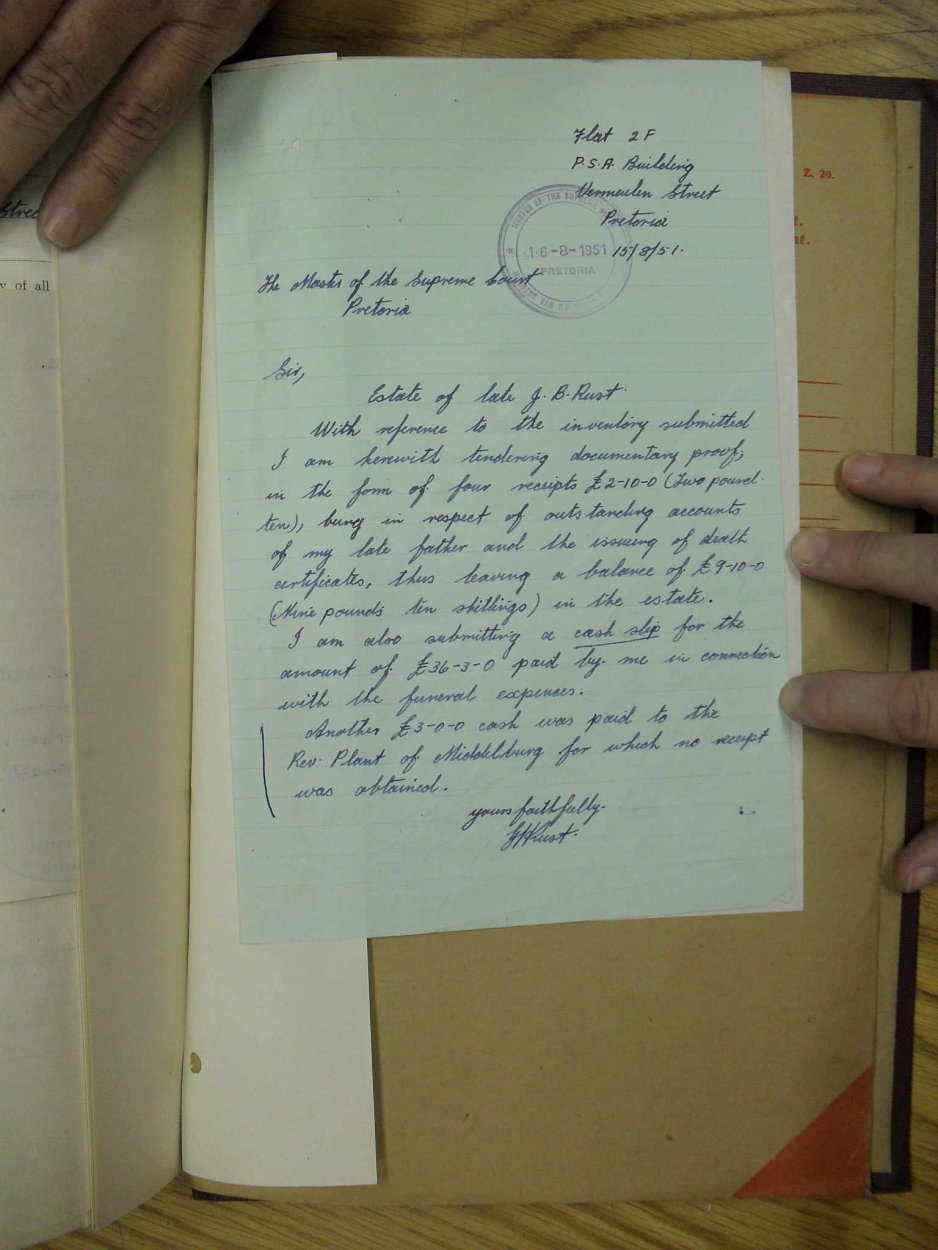 Flat 2F
P.S.A. Building
Vermeulen Street
Pretoria
15/8/51.
MASTER OF THE SUPREME
16-8-1951
PRETORIA
The Master of the Supreme Court
Pretoria
Sir,
Estate of late J. B. Rust.
With reference to the inventory submitted
I am herewith tendering documentary proof,
in the form of four receipts £2-10-0 (Two pound.
ten), being in respect of outstanding accounts
of my late father and the issuing of death
certificates, thus leaving a balance of £9-10-0
(Nine pounds ten shillings) in the estate.
I am also submitting a cash slip for the
amount of £36-3-0 paid by me in connection
with the funeral expences.
Another £3-0-0 cash was paid to the
Rev. Plant of Middelburg for which no receipt
was obtained.
yours faithfully.
Rust.
Z. 20.
of all